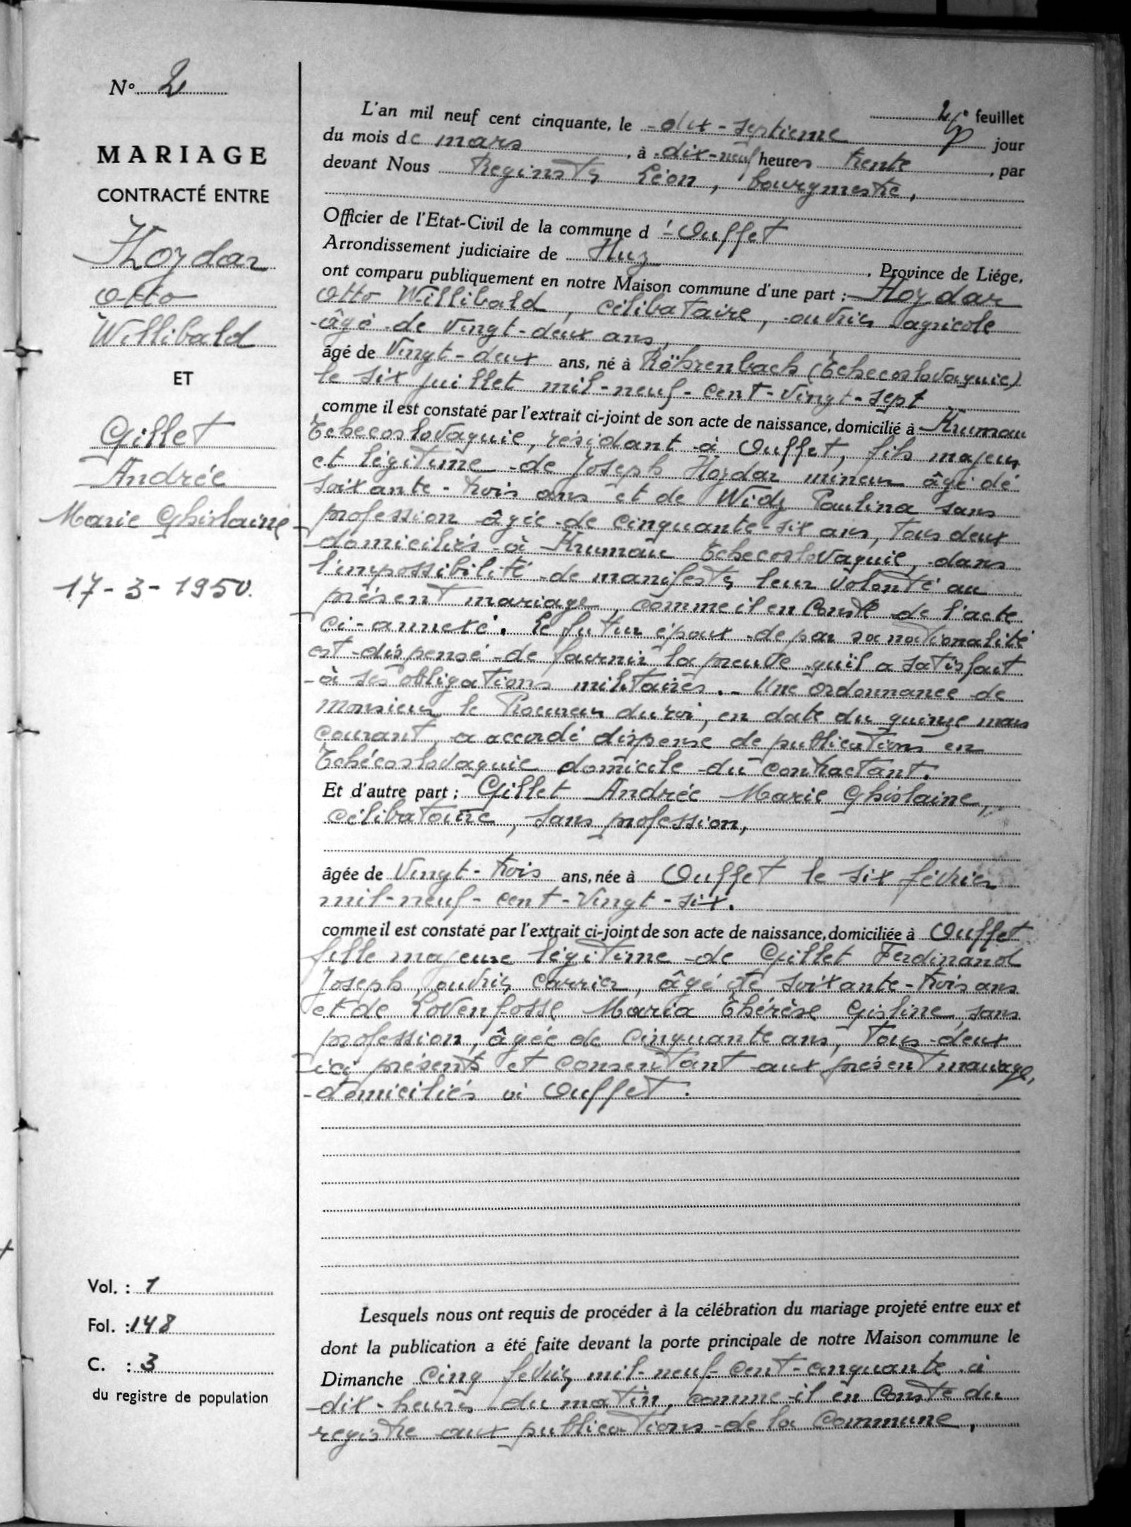 N° 2
MARIAGE
CONTRACTÉ ENTRE
Hozdar
Otto
Willibald
ET
Gillet
Andrée
Marie Ghislaine
17-3-1950.
Vol. : 1
Fol. : 148
C. : 3
du registre de population
2e feuillet
L'an mil neuf cent cinquante, le dix-septième jour
du mois de mars, à dix-neuf heures trente, par
devant Nous Léon, bourgmestre,
Officier de l'Etat-Civil de la commune d'Ouffet
Arrondissement judiciaire de Huy, Province de Liége,
ont comparu publiquement en notre Maison commune d'une part : Hozdar
Otto Willibald, célibataire, ouvrier agricole
âgé de vingt-deux ans,
âgé de vingt-deux ans, né à Röhrenbach (Tchecoslovaquie)
le six juillet mil-neuf-cent-vingt-sept
comme il est constaté par l'extrait ci-joint de son acte de naissance, domicilié à Krumau
Tchecoslovaquie, résidant à Ouffet, fils majeur
et légitime de Joseph Hozdar mineur âgé de
soixante-trois ans et de Widz Paulina sans
profession âgée de cinquante-six ans, tous deux
domiciliés à Krumau Tchecoslovaquie, dans
l'impossibilité de manifester leur volonté au
présent mariage, comme il en conste de l'acte
ci-annexé. Le futur époux de par sa nationalité
est dispensé de fournir la preuve qu'il a satisfait
à ses obligations militaires. - Une ordonnance de
Monsieur le Procureur du roi, en date du quinze mars
courant, a accordé dispense de publications en
Tchécoslovaquie domicile du contractant.
Et d'autre part : Gillet Andrée Marie Ghislaine,
célibataire, sans profession,
âgée de vingt-trois ans, née à Ouffet le six février
mil-neuf-cent-vingt-six.
comme il est constaté par l'extrait ci-joint de son acte de naissance, domiciliée à Ouffet
fille majeure légitime de Gillet Ferdinand
Joseph, ouvrier carrier, âgé de soixante-trois ans
et de Lovenfosse Maria Thérèse Gisline, sans
profession, âgée de cinquante ans, tous deux
ici présents et consentant aux présent mariage,
domiciliés à Ouffet.
Lesquels nous ont requis de procéder à la célébration du mariage projeté entre eux et
dont la publication a été faite devant la porte principale de notre Maison commune le
Dimanche cinq février mil-neuf-cent-cinquante à
dix-heures du matin, comme il en conste du
registre aux publications de la Commune,